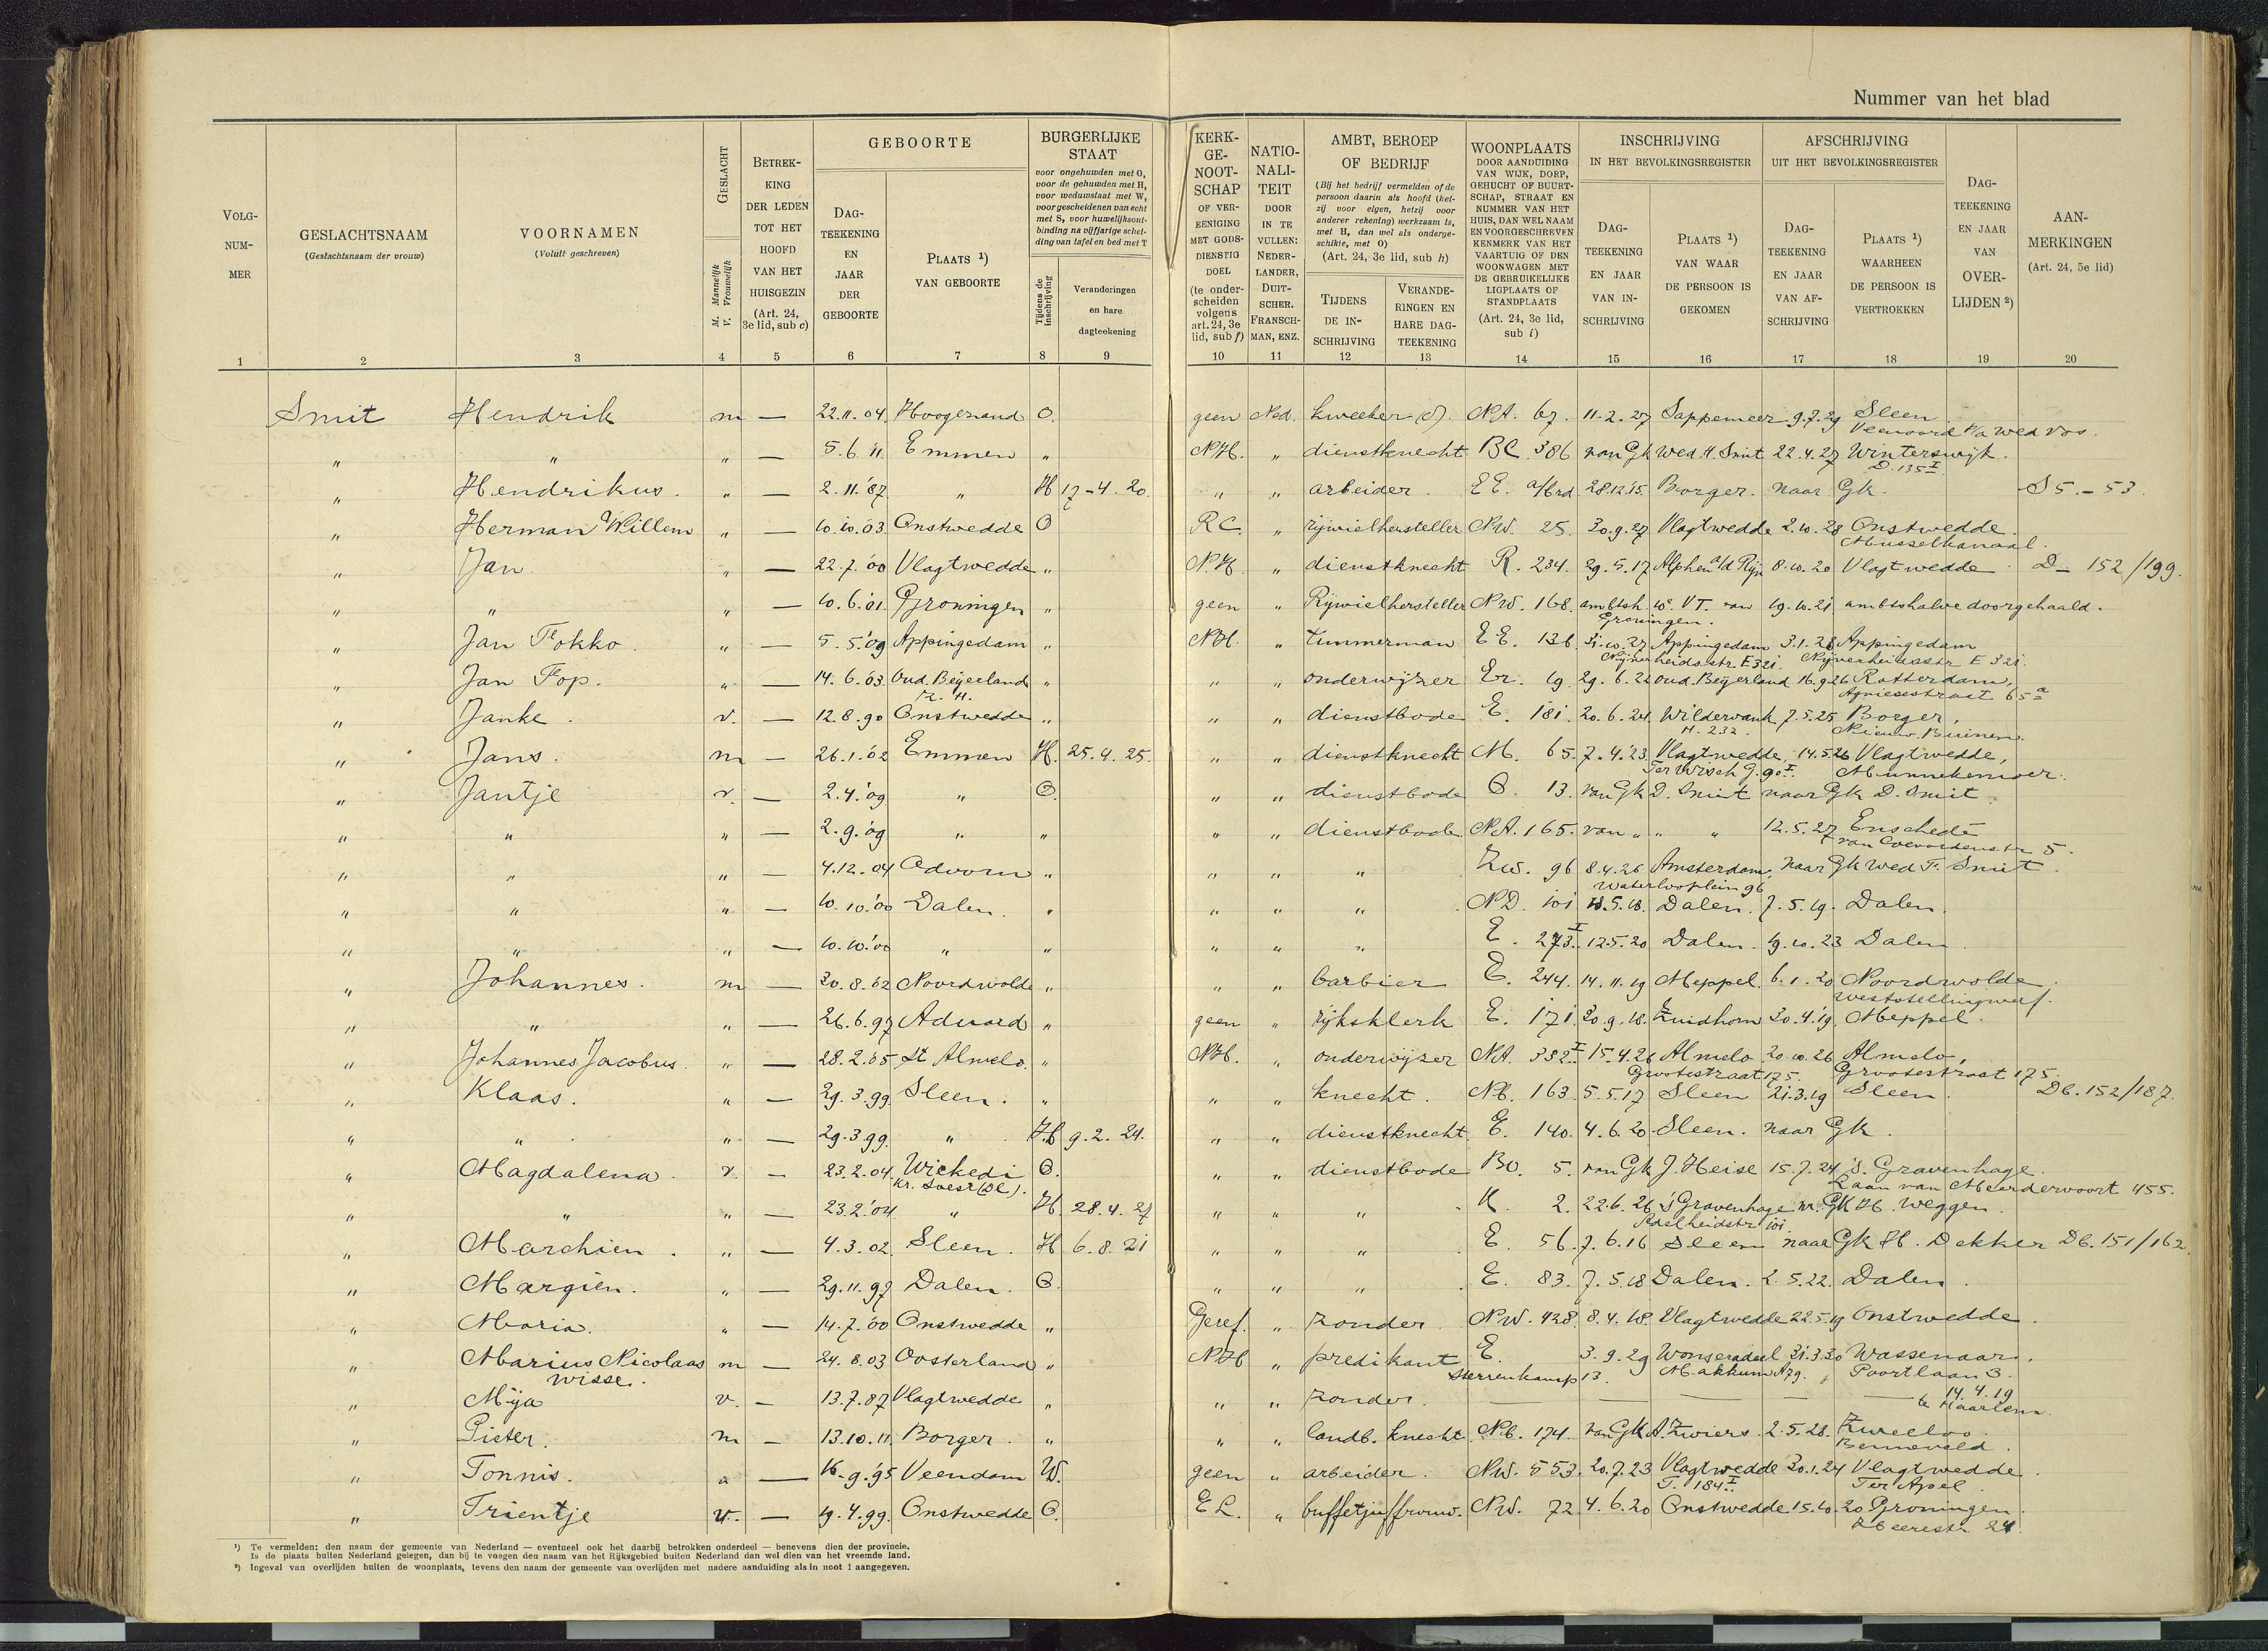 Nummer van het blad
VOLG-NUM-MER
GESLACHTSNAAM (Geslachtsnaam der vrouw)
VOORNAMEN (Voluit geschreven)
GESLACHT M. Mannelijk V. Vrouwelijk
BETREKKING DER LEDEN TOT HET HOOFD VAN HET HUISGEZIN (Art. 24, 3e lid, sub c)
GEBOORTE
DAG-TEEKENING EN JAAR DER GEBOORTE
PLAATS ¹) VAN GEBOORTE
BURGERLIJKE STAAT
voor ongehuwden met O, voor de gehuwden met H, voor weduwstaat met W, voor gescheidenen van echt met S, voor huwelijksontbinding na vijfjarige scheiding van tafel en bed met T
Tijdens de inschrijving
Veranderingen en hare dagteekening
KERKGENOOTSCHAP OF VEREENIGING MET GODSDIENSTIG DOEL (te onderscheiden volgens art. 24, 3e lid, sub f)
NATIONALITEIT DOOR IN TE VULLEN: NEDERLANDER, DUITSCHER, FRANSCHMAN, ENZ.
AMBT, BEROEP OF BEDRIJF
(Bij het bedrijf vermelden of de persoon daarin als hoofd (hetzij voor eigen, hetzij voor anderer rekening) werkzaam is, met H, dan wel als ondergeschikte, met O) (Art. 24, 3e lid, sub h)
TIJDENS DE INSCHRIJVING
VERANDERINGEN EN HARE DAGTEEKENING
WOONPLAATS DOOR AANDUIDING VAN WIJK, DORP, GEHUCHT OF BUURTSCHAP, STRAAT EN NUMMER VAN HET HUIS, DAN WEL NAAM EN VOORGESCHREVEN KENMERK VAN HET VAARTUIG OF DEN WOONWAGEN MET DE GEBRUIKELIJKE LIGPLAATS OF STANDPLAATS (Art. 24, 3e lid, sub i)
INSCHRIJVING IN HET BEVOLKINGSREGISTER
DAG-TEEKENING EN JAAR VAN INSCHRIJVING
PLAATS ¹) VAN WAAR DE PERSOON IS GEKOMEN
AFSCHRIJVING UIT HET BEVOLKINGSREGISTER
DAG-TEEKENING EN JAAR VAN AFSCHRIJVING
PLAATS ¹) WAARHEEN DE PERSOON IS VERTROKKEN
DAG-TEEKENING EN JAAR VAN OVERLIJDEN ²)
AANMERKINGEN (Art. 24, 5e lid)
1 2 3 4 5 6 7 8 9 10 11 12 13 14 15 16 17 18 19 20
Smit Hendrik m — 22.11.04 Hoogezand O. geen Ned. kweeker (O). NA. 67. 11-2.27 Sappemeer 9.7.29 Sleen
Veenoord p/a wed Vos.
" " " — 5.6.'11 Emmen " NH. " dienstknecht BC. 386 van Gk Wed. H. Smit 22.4.27 Winterswijk.
D. 135 I
" Hendrikus. " — 2.11.'87 " H 17-4.20. " " arbeider. EE. a/brd 28.12.'15. Borger. naar Gk. S5.-53.
" Herman Willem " — 10.10.'03 Onstwedde O RC. " rijwielhersteller NW. 25. 30.9.27 Vlagtwedde 2.10.28 Onstwedde.
Musselkanaal.
" Jan " — 22.7.'00 Vlagtwedde " N.H. " dienstknecht R. 234. 29.5.17 Alphen a/d Rijn 8.10.20 Vlagtwedde. D- 152/199.
" " " — 10.6.'01 Groningen " geen " Rijwielhersteller NW. 168. ambtsh. 10e VT. van 19.10.21 ambtshalve doorgehaald.
Groningen.
" Jan Fokko. " — 5.5.'09 Appingedam " NH. " timmerman EE. 136 31.10.27 Appingedam 3.1.28 Appingedam
Nijverheidsstr. E321. Nijverheidsstr E 321.
" Jan Fop. " — 14.6.'03. Oud. Beijerland " " " onderwijzer Er. 19 29.6.22 Oud. Beijerland 16.9.26 Rotterdam,
Z. H. Agniesestraat 65 a
" Janke. v. — 12.8.90 Onstwedde " " " dienstbode E. 181. 20.6.24. Wildervank 7.5.25 Borger,
H. 232. Nieuw. Buinen.
" Jans. m — 26.1.'02 Emmen H. 25.4.25. " " dienstknecht M. 65. 7.4.'23 Vlagtwedde, 14.5.26 Vlagtwedde,
Ter Wisch G.90 I. Munnekemoer.
" Jantje v. — 2.4.'09 " O. " " dienstbode O. 13. van Gk D. Smit naar Gk D. Smit.
" " " — 2.9.'09 " " " " dienstbode NA. 165. van " " " 12.5.27 Enschedé
van Coevordenstr 5.
" " " — 4.12.04 Odoorn " " " " Zw. 96 8.4.26 Amsterdam, naar Gk wed F. Smit.
Waterlooplein 96
" " " — 10.10.'00 Dalen. " " " " ND. 101 18.5.18. Dalen. 7.5.19. Dalen.
" " " — 10.10.'00 " " " " " E. 273 I. 12.5.20 Dalen. 19.10.23 Dalen.
" Johannes. m — 30.8.62 Noordwolde " " " barbier E. 244. 14.11.19 Meppel. 6.1.20 Noordwolde.
Weststellingwerf.
" " " — 26.6.97 Aduard " geen " rijksklerk E. 171. 30.9.18. Zuidhorn 30.4.'19. Meppel.
" Johannes Jacobus. " — 28.2.'05 St Almelo. " NH. " onderwijzer NA. 332 I 15.4.26 Almelo 20.10.26 Almelo,
Grootestraat 175. Grootestraat 175.
" Klaas. " — 29.3.99. Sleen. " " " knecht. NB. 163. 5.5.17 Sleen 21.3.19 Sleen. DB. 152/187.
" " " — 29.3.99. " H 9.2.24. " " dienstknecht E. 140. 4.6.20 Sleen. naar Gk.
" Magdalena. v. — 23.2.04. Wickedi O. " " dienstbode BO. 5. van Gk J. Heise 15.7.24 's. Gravenhage.
kr. Soest (Dl). Laan van Meerdervoort 455.
" " " — 23.2.'04 " H. 28.4.27 " " " K. 2. 22.6.26 's Gravenhage nr. Gk H. Weggen.
Adelheidstr 101.
" Marchien. " — 4.3.02. Sleen. H 6.8.21 " " " E. 56. 7.6.16 Sleen naar Gk H. Dekker DB. 151/162.
" Margien. " — 29.11.97 Dalen. O. " " " E. 83. 7.5.18 Dalen. 2.5.22. Dalen.
" Maria. " — 14.7.'00 Onstwedde " Geref. " zonder. NW. 428. 8.4.18. Vlagtwedde 22.5.19 Onstwedde.
" Marius Nicolaas m — 24.8.03 Oosterland " NH " predikant E. 3.9.29 Wonseradeel 31.3.30 Wassenaar.
Wisse. Sterrenkamp 13. Makkum A79. Poortlaan 3.
" Mija v. — 13.7.87 Vlagtwedde " " " zonder. — — — — 14.4.19
te Haarlem.
" Pieter. m — 13.10.11. Borger. " " " landb. knecht NB. 174. van Gk A. Zwiers. 2.5.28. Zweeloo.
Benneveld.
" Tonnis. " — 16.9.'95 Veendam W. geen " arbeider. NW. 553. 20.7.23 Vlagtwedde 30.1.24 Vlagtwedde.
T. 184 I. Ter Apel.
" Trientje v. — 19.4.99. Onstwedde O. EL. " buffetjuffrouw. NW. 72 4.6.20 Onstwedde 15.10.20 Groningen.
Heerestr 24.
¹) Te vermelden: den naam der gemeente van Nederland — eventueel ook het daarbij betrokken onderdeel — benevens dien der provincie.
Is de plaats buiten Nederland gelegen, dan bij te voegen den naam van het Rijksgebied buiten Nederland dan wel dien van het vreemde land.
²) Ingeval van overlijden buiten de woonplaats, tevens den naam der gemeente van overlijden met nadere aanduiding als in noot 1 aangegeven.